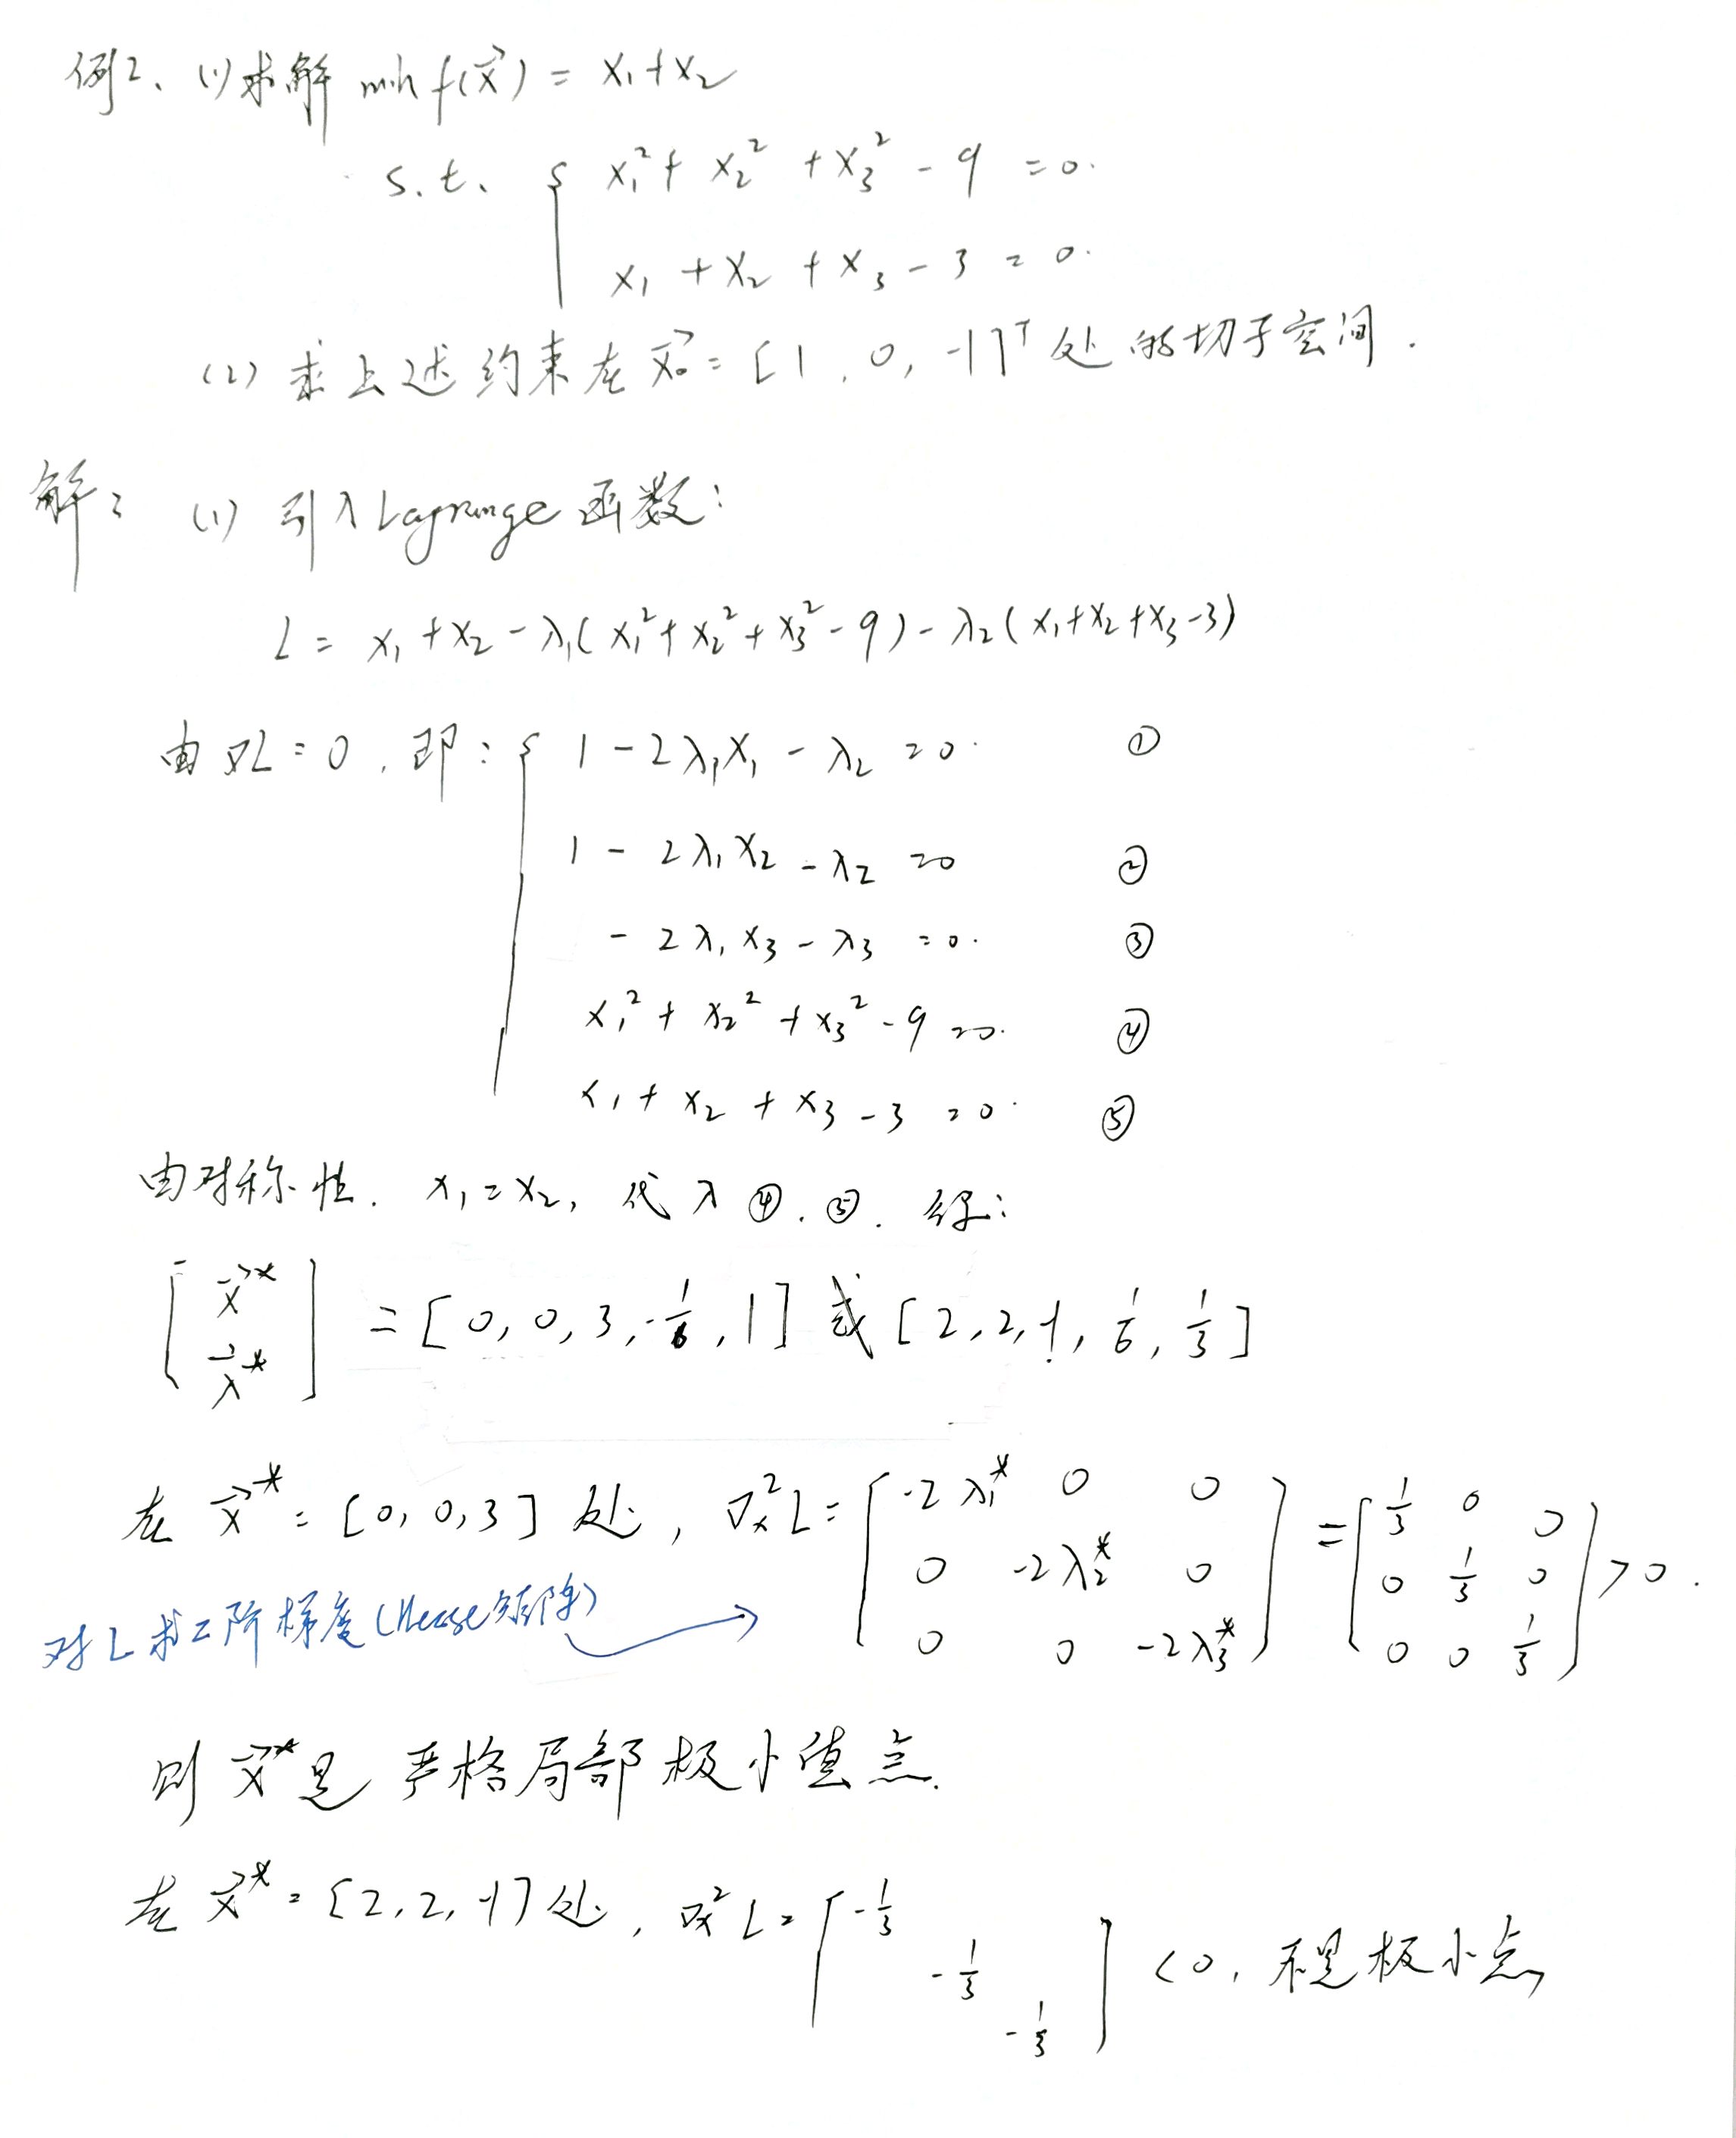 例2、(1)求解 min f(x⃗) = x₁+x₂
s.t. { x₁²+x₂²+x₃²-9=0.
x₁+x₂+x₃-3=0.
(2) 求上述约束在 x⃗₀=[1,0,-1]ᵀ 处的切子空间.
解: (1) 引入Lagrange函数:
L = x₁+x₂-λ₁(x₁²+x₂²+x₃²-9)-λ₂(x₁+x₂+x₃-3)
由∇L=0, 即: { 1-2λ₁x₁-λ₂=0. ①
1-2λ₁x₂-λ₂=0 ②
-2λ₁x₃-λ₃=0. ③
x₁²+x₂²+x₃²-9=0. ④
x₁+x₂+x₃-3=0. ⑤
由对称性. x₁=x₂, 代入④.⑤. 得:
[x⃗* λ⃗*] = [0,0,3,-1/6,1] 或 [2,2,-1,1/6,1/3]
在 x⃗*=[0,0,3] 处, ∇ₓ²L= [-2λ₁* 0 0 0 -2λ₂* 0 0 0 -2λ₃*] = [1/3 0 0 0 1/3 0 0 0 1/3] >0.
对L求二阶梯度(Hesse矩阵)
则 x⃗*是 严格局部极小值点.
在 x⃗*=[2,2,-1]处, ∇ₓ²L= [-1/3 -1/3 -1/3] <0, 不是极小点